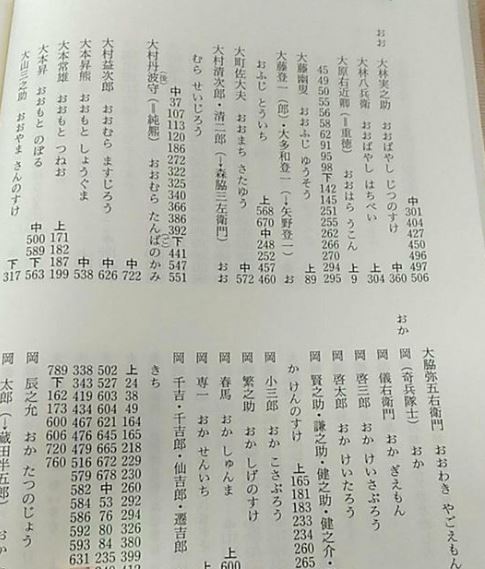 おお
中 301 404 427 450 496 497 506
大林実之助 おおばやし じつのすけ 中 360
大林八兵衛 おおばやし はちべい 上 304
大原右近卿(=重徳) おおはら うこん 上 9
45 49 50 55 56 58 62 91 95 98 下 142 145 251 255 262 266 270 294 295
大藤幽叟 おおふじ ゆうそう 上 89
大藤登一(郎)・大多和登一(→矢野登一) お
おふじ とういち 上 568 670 中 248 252 457 460
大町佐大夫 おおまち さたゆう 中 572
大村清次郎・清二郎(→森脇三左衛門) おお
むら せいじろう
中 37 107 113 120 186 272 322 325 340 366 386 392 下 441 547 551
大村丹波守(後)(=純熈) おおむら たんばのかみ(ご)
中 722
大村益次郎 おおむら ますじろう 中 626
大本昇熊 おおもと しょうぐま 中 538
大本常雄 おおもと つねお 上 171 182 187 199
大本昇 おおもと のぼる 中 500 589 下 563
大山三之助 おおやま さんのすけ 下 317
大脇弥五右衛門 おおわき やごえもん
おか
岡(奇兵隊士) おか
岡 儀右衛門 おか ぎえもん
岡 啓三郎 おか けいさぶろう
岡 啓太郎 おか けいたろう
岡 賢之助・謙之助・健之助・健之介・
か けんのすけ 上 165 181 183 233 234 260 265
岡 小三郎 おか こさぶろう
岡 繁之助 おか しげのすけ
岡 春馬 おか しゅんま 上 600
岡 専一 おか せんいち
岡 千吉・千吉郎・仙吉郎・遷吉郎
きち
上 24 38 49 164 165 218 229 230 260 292 294 326 380 399
502 527 603 604 621 645 665 672 678 中 53 76 80 84 235
338 343 419 434 467 476 479 516 579 582 584 586 592 593 631
789 下 162 173 600 606 720 760
岡 辰之允 おか たつのじょう
岡 太郎(→蔵田半五郎) おか